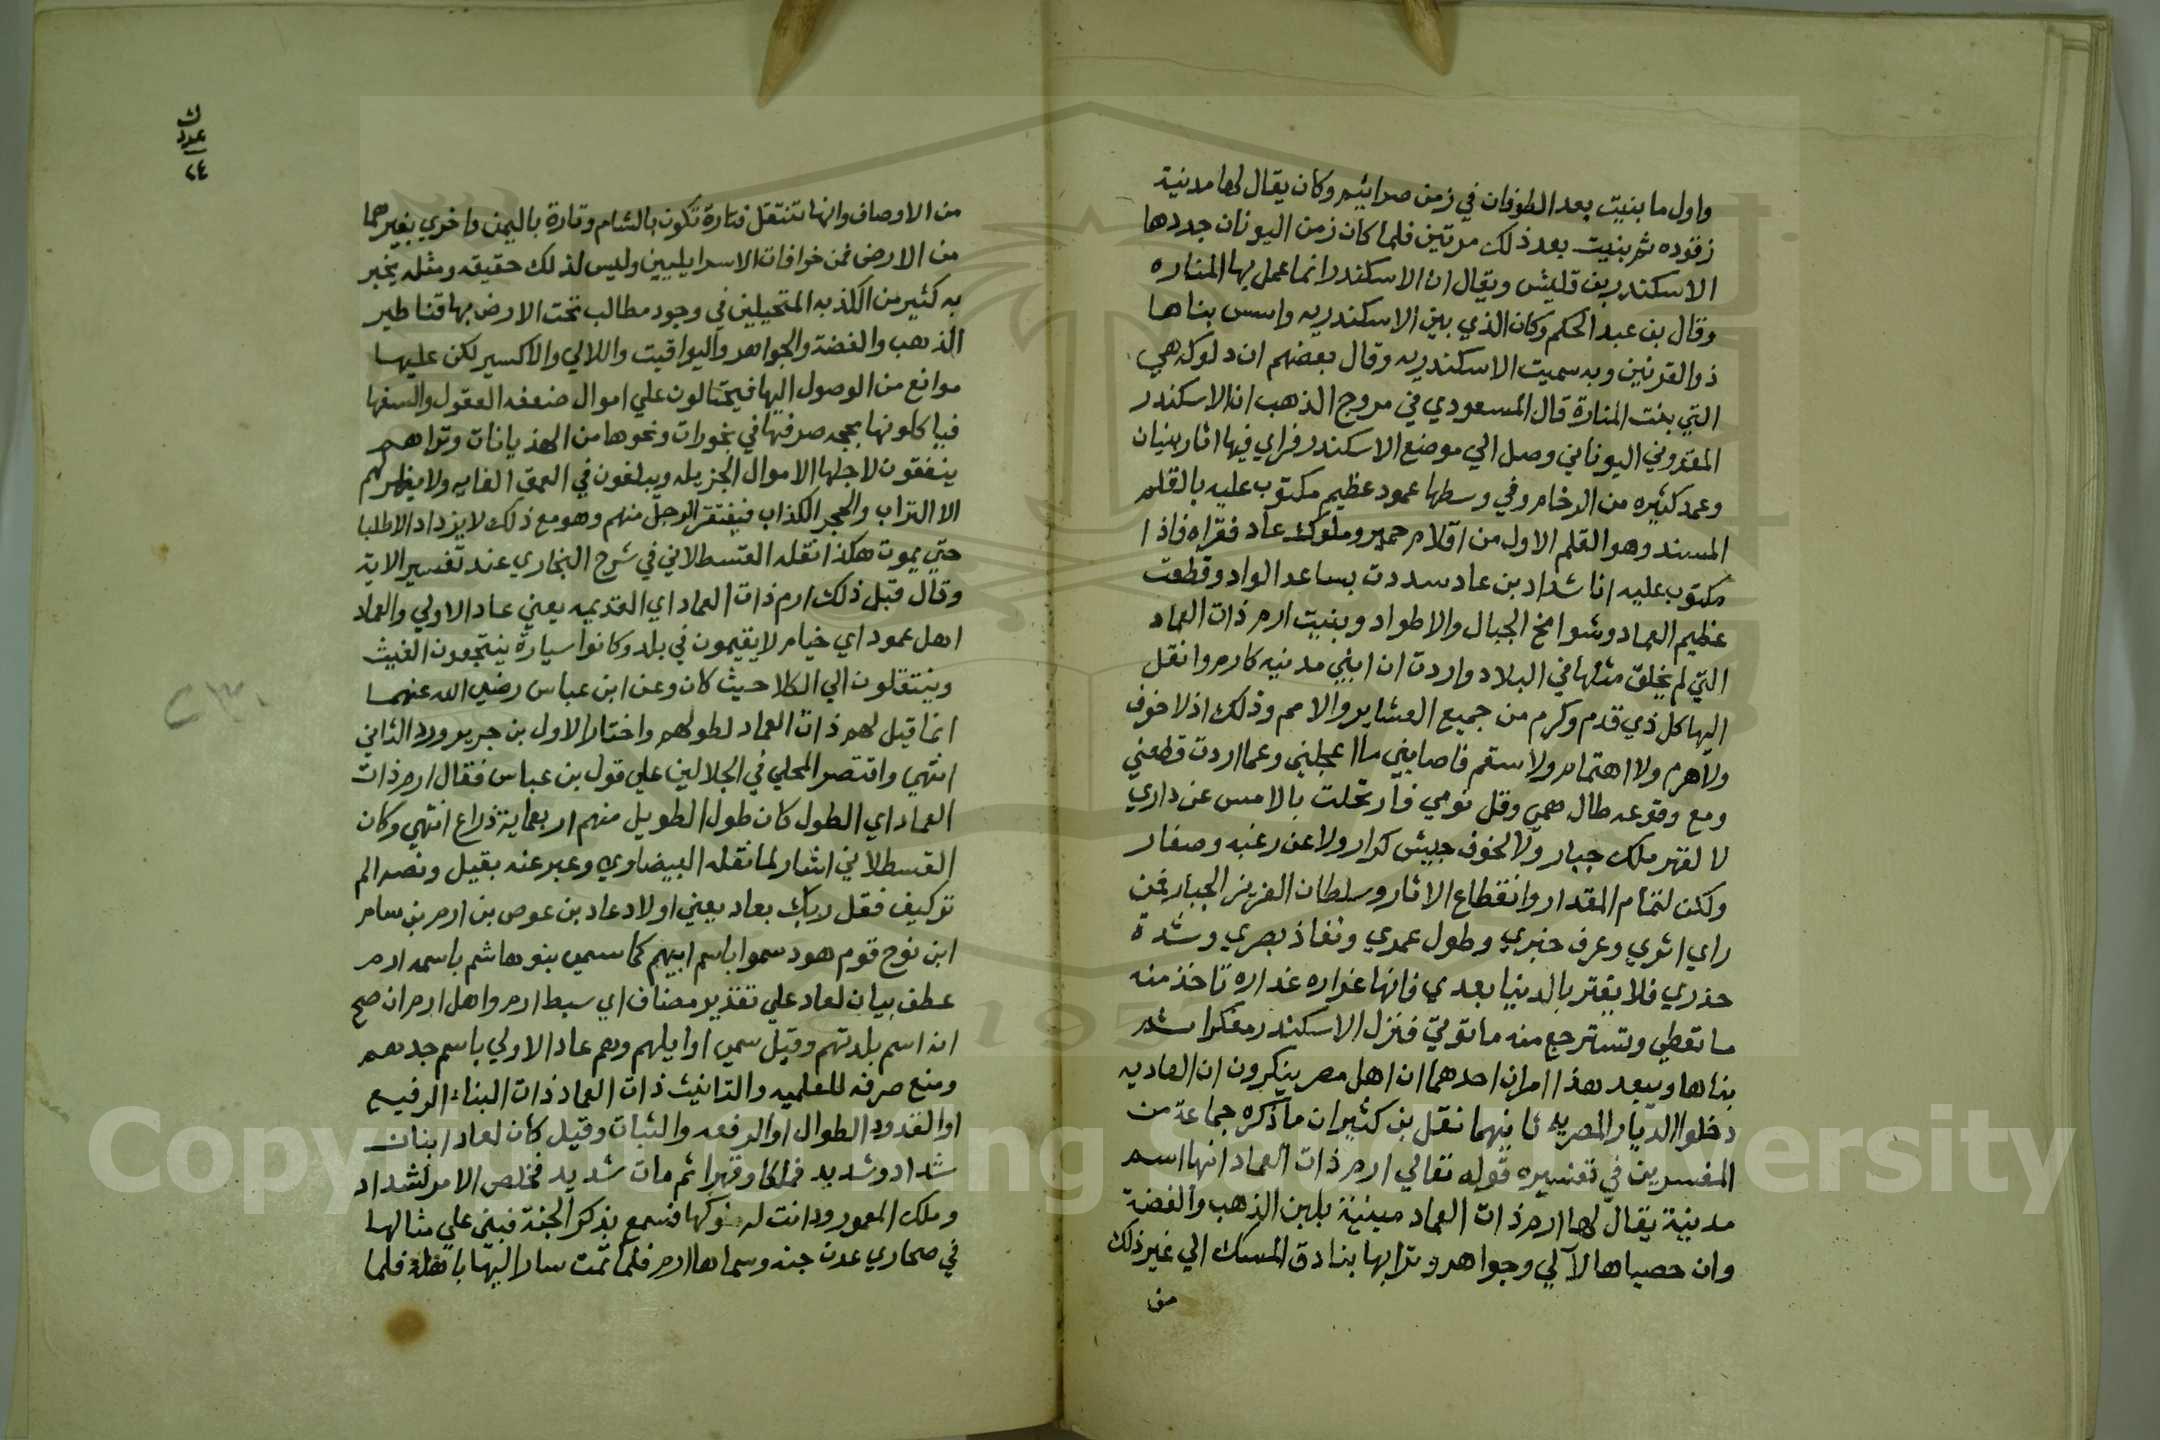 واول ما بنيت بعد الطوفان في زمن صرابيم وكان يقال لها مدينة
رقوده ثم بنيت بعد ذلك مرتين فلما كان زمن اليونان جددها
الاسكندر بن قليش ويقال ان الاسكندر انما عمل بها المناره
وقال بن عبد الحكم وكان الذي بني الاسكندريه واسس بناها
ذو القرنين وبه سميت الاسكندريه وقال بعضهم ان دلوكه هي
التي بنت المنارة قال المسعودي في مروج الذهب ان الاسكندر
المقدوني اليوناني وصل الي موضع الاسكندر فراي فيها اثار بنيان
وعمد كثيره من الرخام وفي وسطها عمود عظيم مكتوب عليه بالقلم
المسند وهو القلم الاول من اقلام حمير وملوك عاد فقراه فاذا
مكتوب عليه انا شداد بن عاد سددت بساعد الواد وقطعت
عظيم العماد وشوامخ الجبال والاطواد وبنيت ارم ذات العماد
التي لم يخلق مثلها في البلاد واردت ان ابني مدينه كارم وانقل
اليها كل ذي قدم وكرم من جميع العشاير والامم وذلك اذ لا خوف
ولا هرم ولا اهتمام ولا سقم فاصابني ما اعجلني وعما اردت قطعني
ومع وقوعه طال همي وقل نومي فارتحلت بالامس عن داري
لا لقهر ملك جبار ولا لخوف جيش كرار ولا عن رغبه وصغار
ولكن لتمام المقدار وانقطاع الاثار وسلطان العزيز الجبار فمن
راي اثري وعرف خبري وطول عمري ونفاذ بصري وشدة
حذري فلا يغتر بالدنيا بعدي فانها غراره غداره تاخذ منه
ما تعطي وتسترجع منه ما توتي فنزل الاسكندر مفكرا ثم
بناها ويبعد هذا امران احدهما ان اهل مصر ينكرون ان العاديه
دخلوا الديار المصريه ثانيهما نقل بن كثير ان ما ذكره جماعة من
المفسرين في تفسيره قوله تعالي ارم ذات العماد انها اسم
مدينة يقال لها ارم ذات العماد مبنية بلبن الذهب والفضة
وان حصباها لآلي وجواهر وترابها بنادق المسك الي غير ذلك
من
ك
عدد
٢٤
من الاوصاف وانها تنتقل فتارة تكون بالشام وتارة باليمن واخري بغيرهما
من الارض فمن خرافات الاسراييليين وليس لذلك حقيقه ومثله يخبر
به كثير من الكذبه المتحيلين في وجود مطالب تحت الارض بها قناطير
الذهب والفضة والجواهر واليواقيت واللالي والاكسير لكن عليها
موانع من الوصول اليها فيحتالون علي اموال ضعفه العقول والسفها
فياكلونها بحجه صرفها في بخورات ونحوها من الهذيانات وتراهم
ينفقون لاجلها الاموال الجزيله ويبلغون في العمق الغايه ولا يظهر لهم
الا التراب والحجر الكذاب فيفتقر الرجل منهم وهو مع ذلك لا يزداد الا طلبا
حتي يموت هكذا نقله القسطلاني في شرح البخاري عند تفسير الاية
وقال قبل ذلك ارم ذات العماد اي القديمه يعني عاد الاولي والعماد
اهل عمود اي خيام لا يقيمون في بلد وكانوا سيارة ينتجعون الغيث
وينتقلون الي الكلا حيث كان وعن ابن عباس رضي الله عنهما
انما قيل لهم ذات العماد لطولهم واختار الاول بن جرير ورد الثاني
انتهي واقتصر المحلي في الجلالين علي قول بن عباس فقال ارم ذات
العماد اي الطول كان طول الطويل منهم اربعماية ذراع انتهي وكان
القسطلاني اشار لما نقله البيضاوي وعبر عنه بقيل ونصه الم
تر كيف فعل ربك بعاد يعني اولاد عاد بن عوص بن ارم بن سام
ابن نوح قوم هود سموا باسم ابيهم كما سمي بنو هاشم باسمه ارم
عطف بيان لعاد علي تقدير مضاف اي سبط ارم واهل ارم ان صح
انه اسم بلدتهم وقيل سمي اوايلهم وهم عاد الاولي باسم جدهم
ومنع صرفه للعلميه والتانيث ذات العماد ذات البناء الرفيع
او القدود الطوال او الرفعه والثبات وقيل كان لعاد ابنان
شداد وشديد فملكا وقهرا ثم مات شديد فخلص الامر لشداد
وملك المعمور ودانت له ملوكها فسمع بذكر الجنة فبني علي مثالها
في صحاري عدن جنه وسماها ارم فلما تمت سار اليها باهله فلما
Copyright © King Saud University